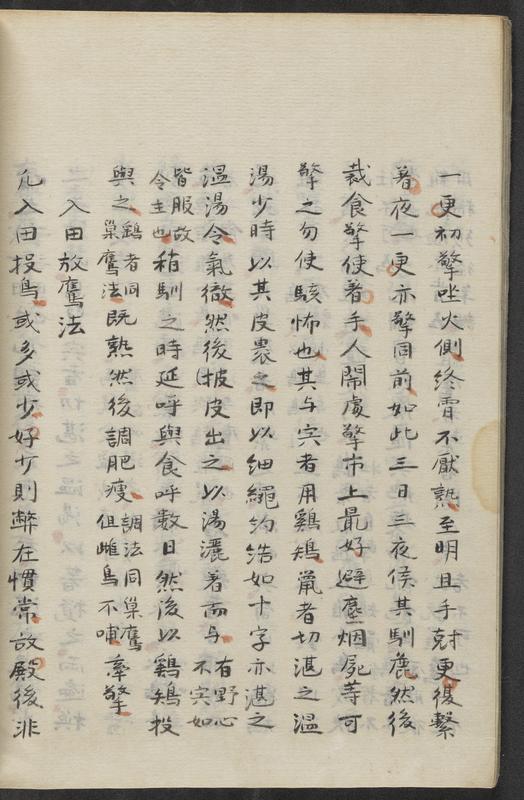 一更初擎唑火側終霄不厭熟至明旦手尅更復繫
着夜一更亦擎同前如此三日三夜侯其馴麁然後
裁食擎使著手人閙處擎市上最好避塵烟屍䓁可
擎之勿使駭怖也其与宍者用鷄雉䑕者切湛之温
湯少時以其皮裹之即以細繩約結如十字亦湛之
温湯令氣徹然後披皮出之以湯灑著而与有野心不宍如
皆服故令主也稍馴之時延呼與食呼数日然後以鷄雉投
與之鷄者同巢鷹法既熟然後調肥瘦調法同巢鷹但雌鳥不哺牽擎
入田放鷹法
凡入田投鳥或多或少好少則弊在慣常故殿後非